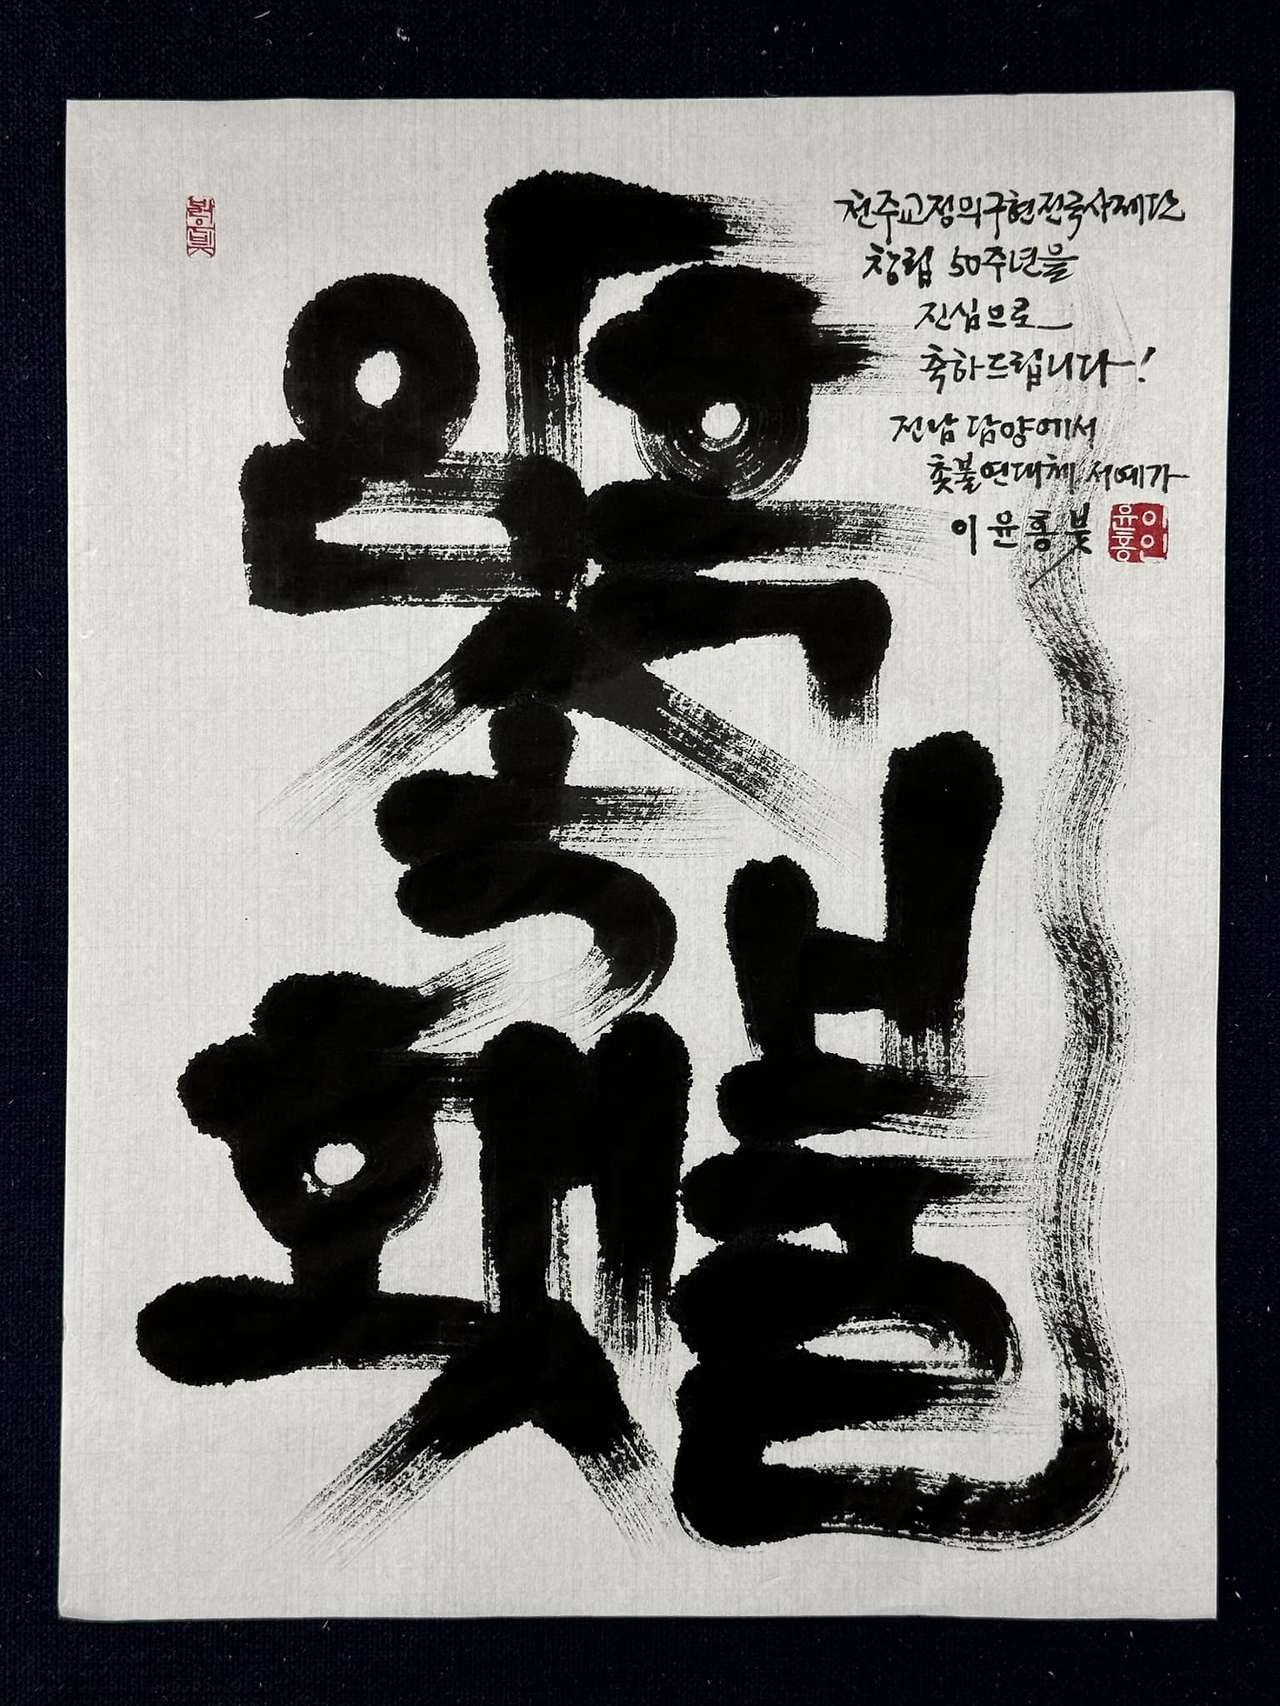 암흑
속
횃불
천주교정의구현전국사제단
창립 50주년을
진심으로
축하드립니다!
전남 담양에서
촛불연대체 서예가
이 윤 룡 붓